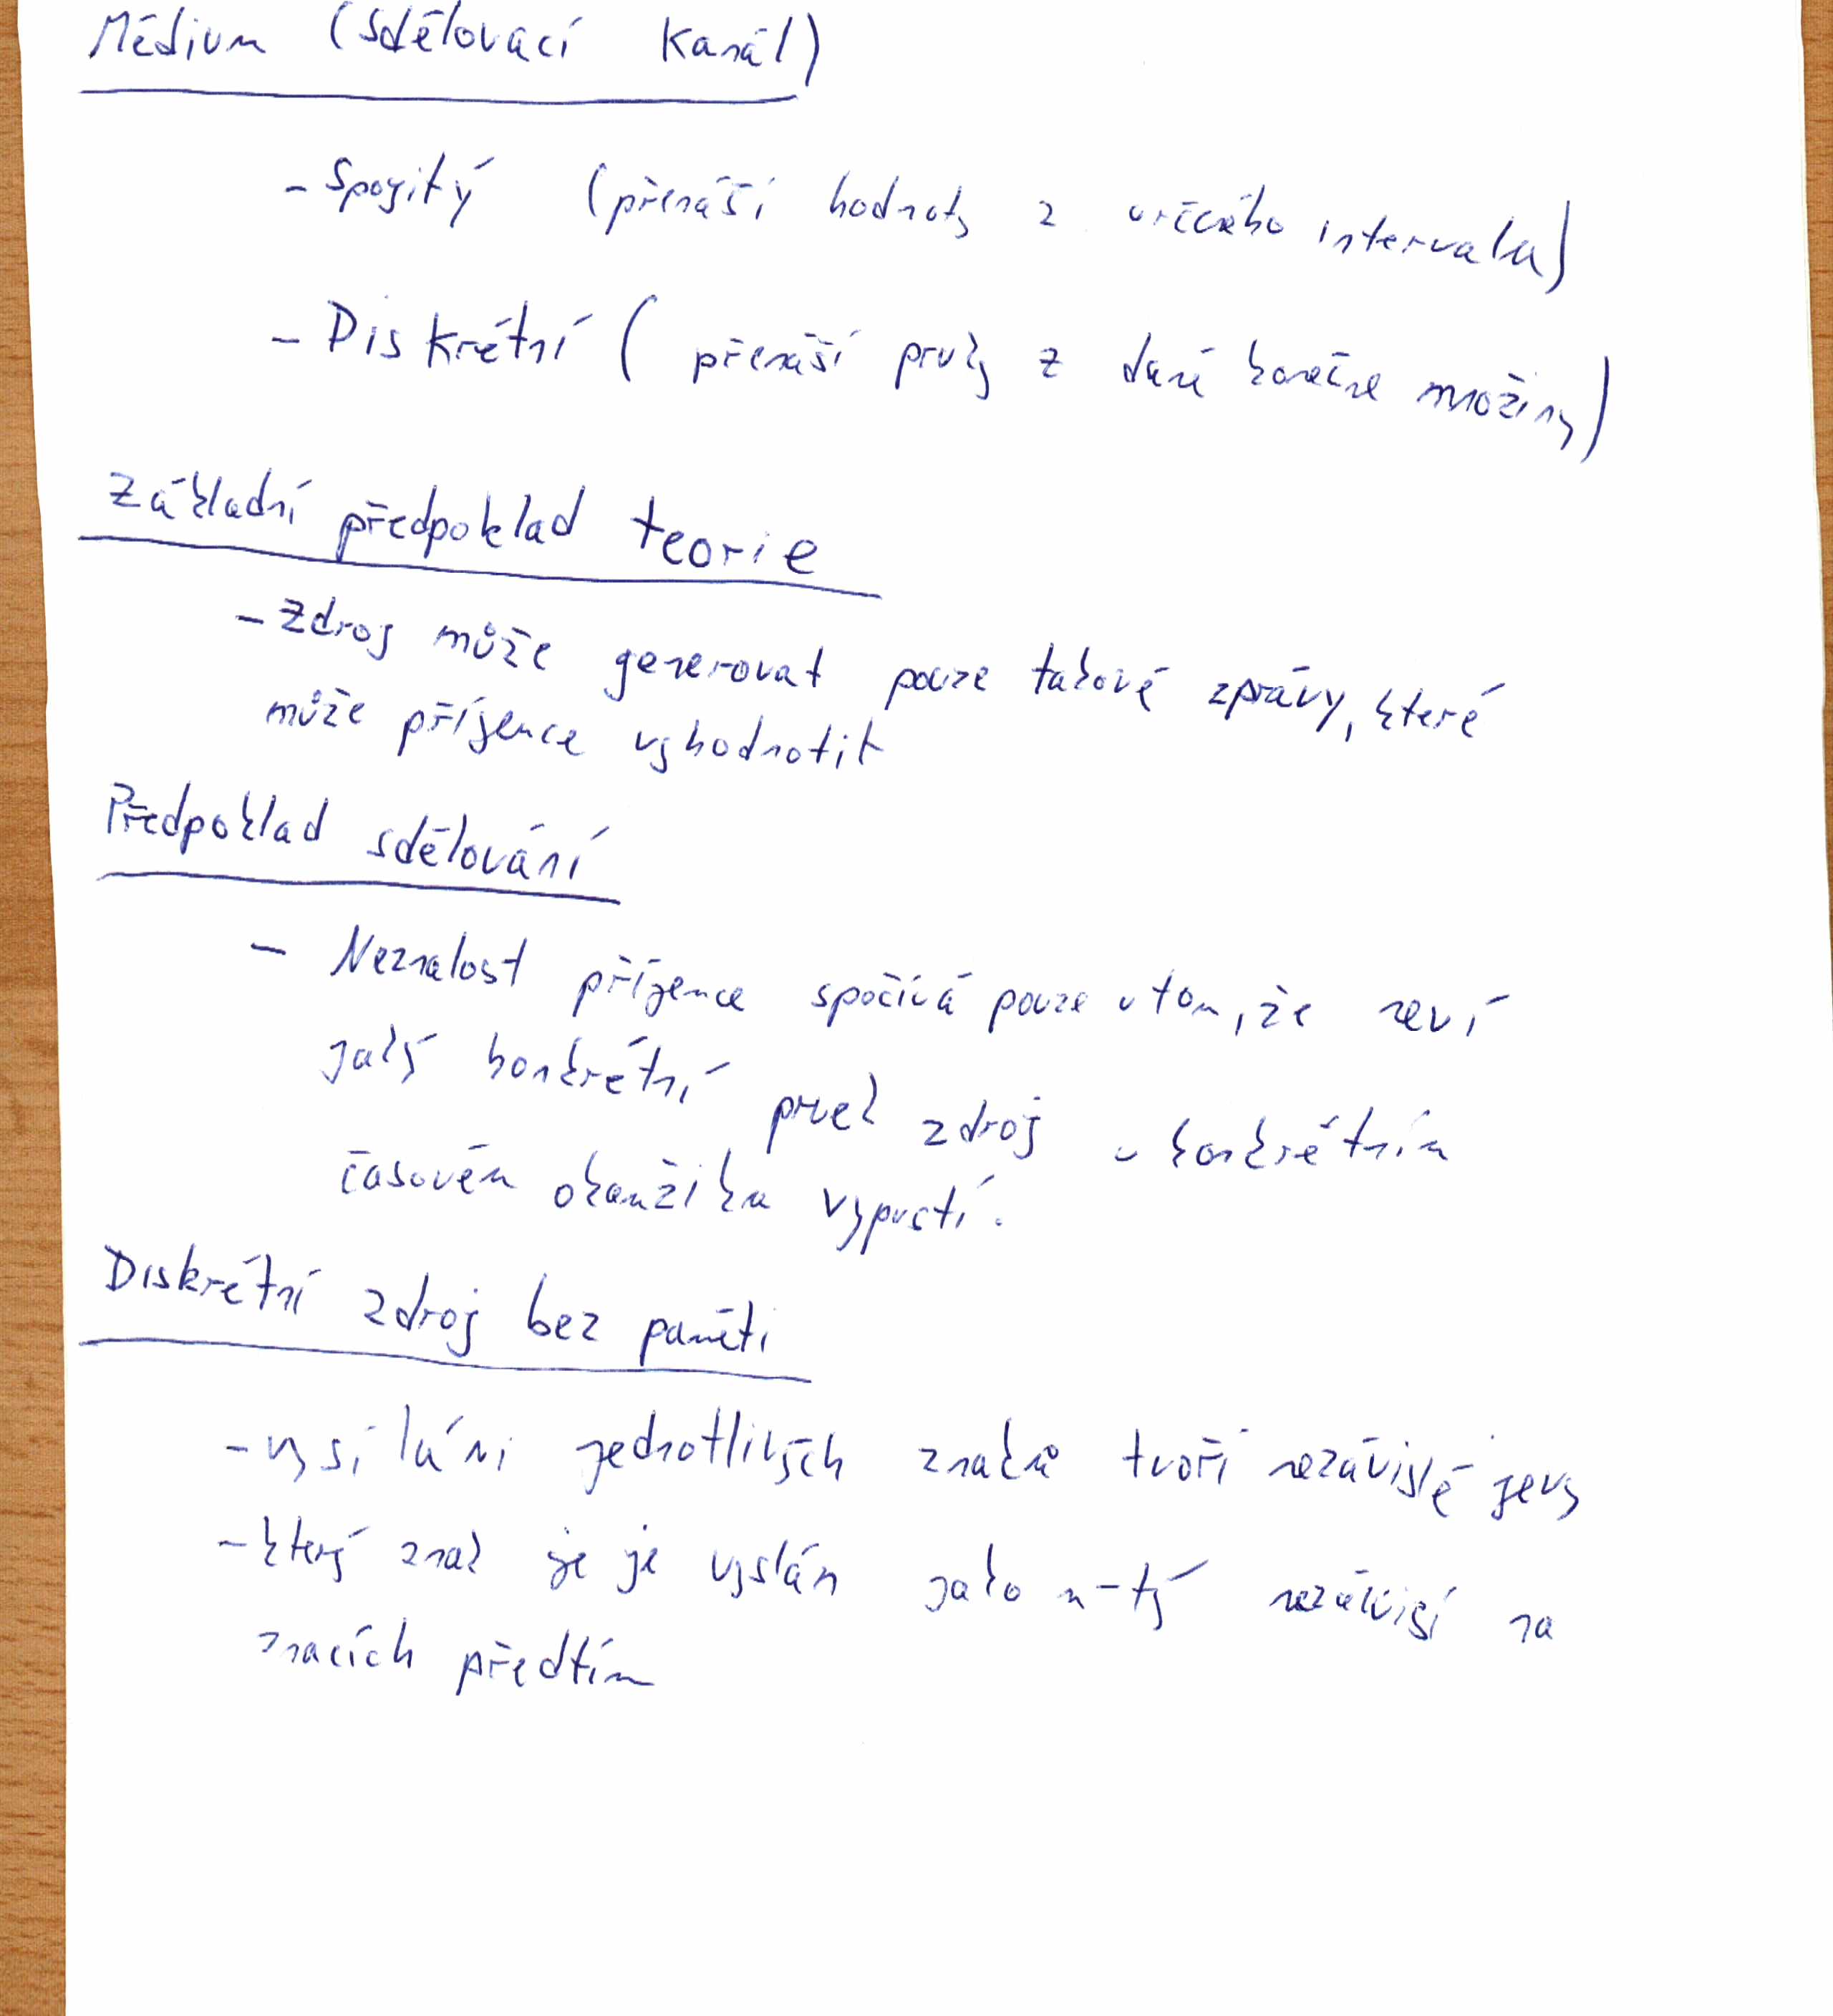 Médium (sdělovací kanál)
- Spojitý (přenáší hodnoty z určitého intervalu)
- Diskrétní (přenáší prvky z dané konečné množiny)
Základní předpoklad teorie
- Zdroj může generovat pouze takové zprávy, které
může příjemce vyhodnotit
Předpoklad sdělování
- Neznalost příjemce spočívá pouze v tom, že neví
jaký konkrétní prvek zdroj v konkrétním
časovém okamžiku vypustí.
Diskrétní zdroj bez paměti
- vysílání jednotlivých znaků tvoří nezávislé jevy
- který znak je je vyslán jako n-tý nezávisí na
znacích předtím